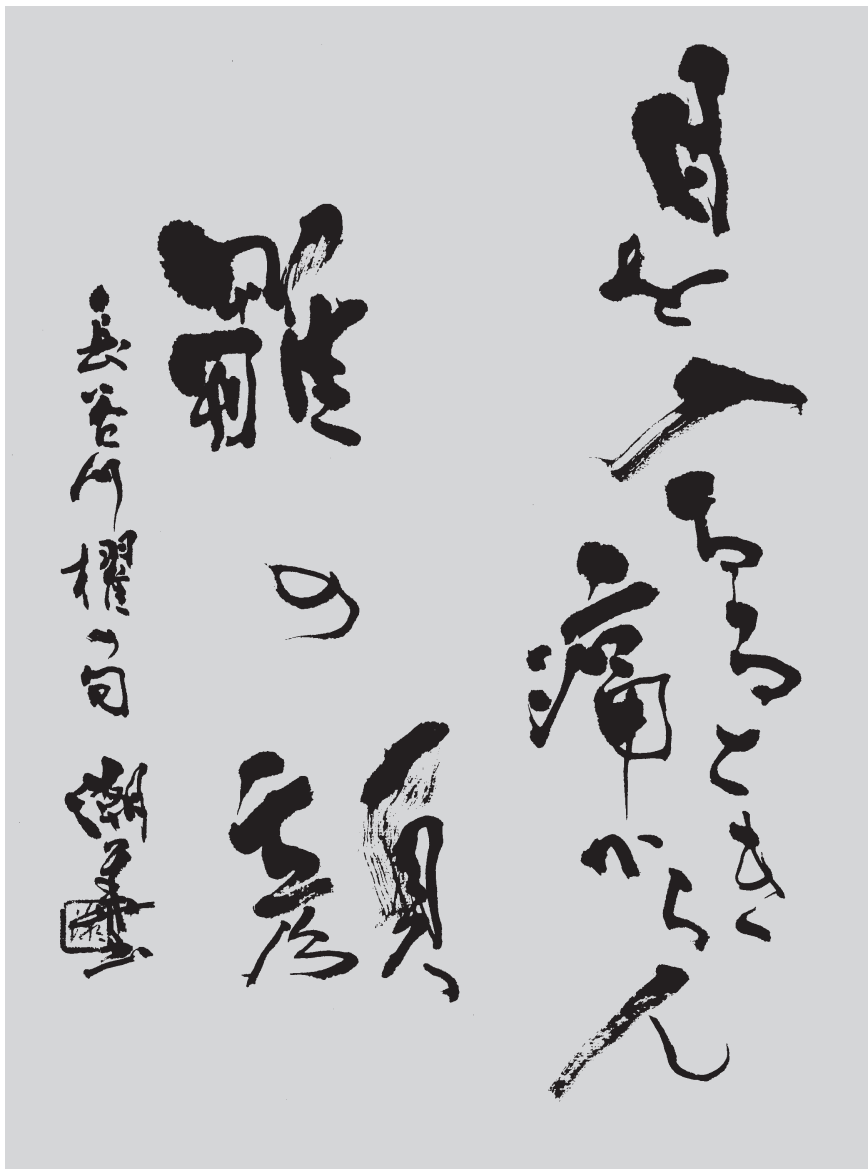 目を入るるとき
痛からん
雛の顔
長谷川櫂の句 潮